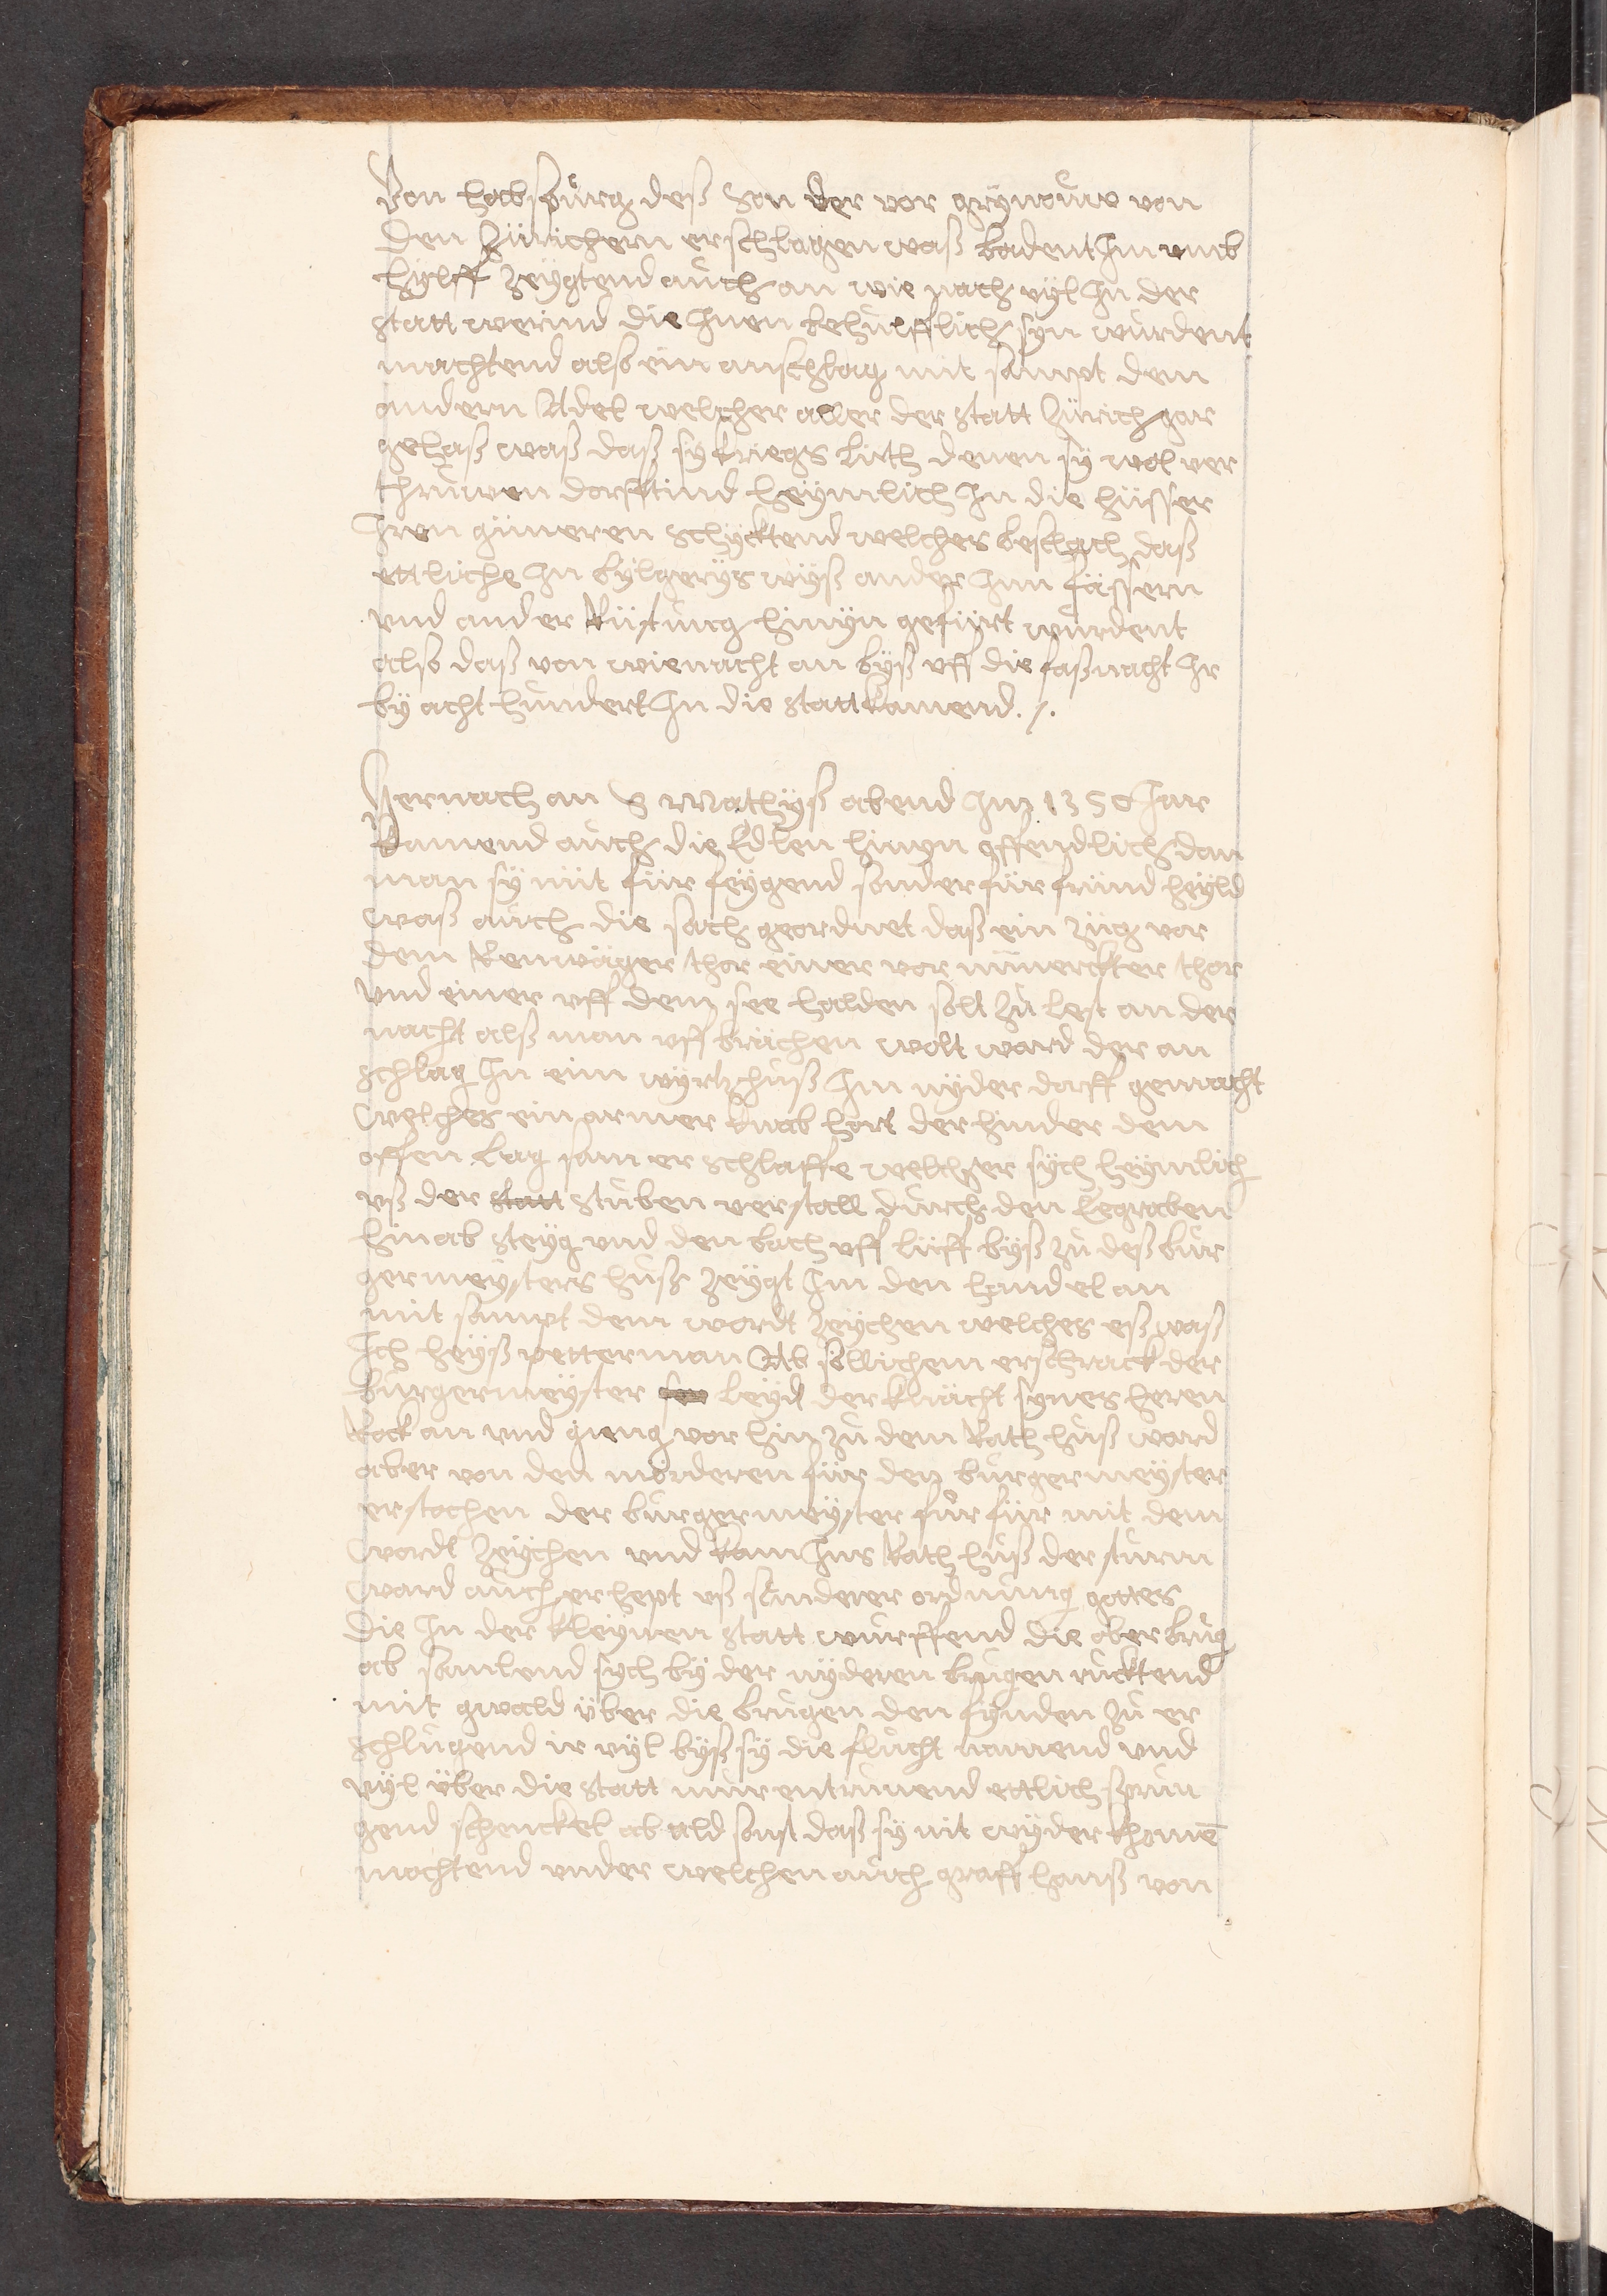 Von habspůrg deß Son der vor grÿnoͤuw von
den Zürichern erschlagen waß badent Jn umb
hÿlff zeÿgtend auch an wie nach vÿl Jn der
statt werind die Jnen behulfflich sÿn wurdent
machtend also ein anschlag mit sampt dem
andern Adel welcher aller der statt Zürich gar
gehaß waß daß sÿ kriegs lüth denen sÿ wol ver
thruwen dorfftind heÿmlich Jn die hüsser
Jren günneren schÿcktend welches beschach daß
ettliche Jn bÿlgerÿs wÿß ander Jnn fässern
und ander Rüstung hinÿn gefürt wurdent
also daß von wienacht an bÿß uff die faßnacht Jr
bÿ acht hundert Jn die statt kamend ./.
Hernach an S Mathÿß abend Jm 1350 Jar
kamend auch die Edlen hinÿn offendlich dan
man sÿ nüt für feÿgend sonder für fründ heÿld
waß auch die sach geordnet daß ein züg vor
dem Renwäger thor einer vor nümerckter thor
und einer uff dem see halden solt zu lest an der
nacht alß man uff brächen wolt ward der an
schlag Jn eim wÿrtzhuß Jm nÿder dorff gemacht
welches ein armer knab hort der hinder dem
offen lag sam er schlaffe welcher sÿch heÿmlich
uß der statt stuben verstall durch den Eegraben
hinab steÿg und den bach uff lüff bÿß zu deß bur
germeÿsters huß zeÿgt Jm den handel an
mit sampt dem wordt zeÿchen welches eß waß
Jch heÿß petterman Ab sollichem erschrack der
burgermeÿster leÿd der knächt sÿnes heren
Rock an und gieng vor hin zu dem Rath huß ward
aber von den mörderen für den burgermeÿster
erstochen der burgermeÿster für für mit dem
wordt zeÿchen und kam Jns Rath huß der sturm
ward auch erhept uß sonderer ordnung gottes
die Jn der kleÿnen statt wurffend die ober brug
ab samlend sÿch bÿ der nÿderen brugen rucktend
mit gwald über die brugen den fÿnden zu er
schlugend ir vÿl bÿß sÿ die flucht namend und
vÿl über die statt mür entrunend ettlich sprun
gend schenckel ab ald sonst daß sÿ nit wÿder khomē
mochtend under welchen auch graff hanß von